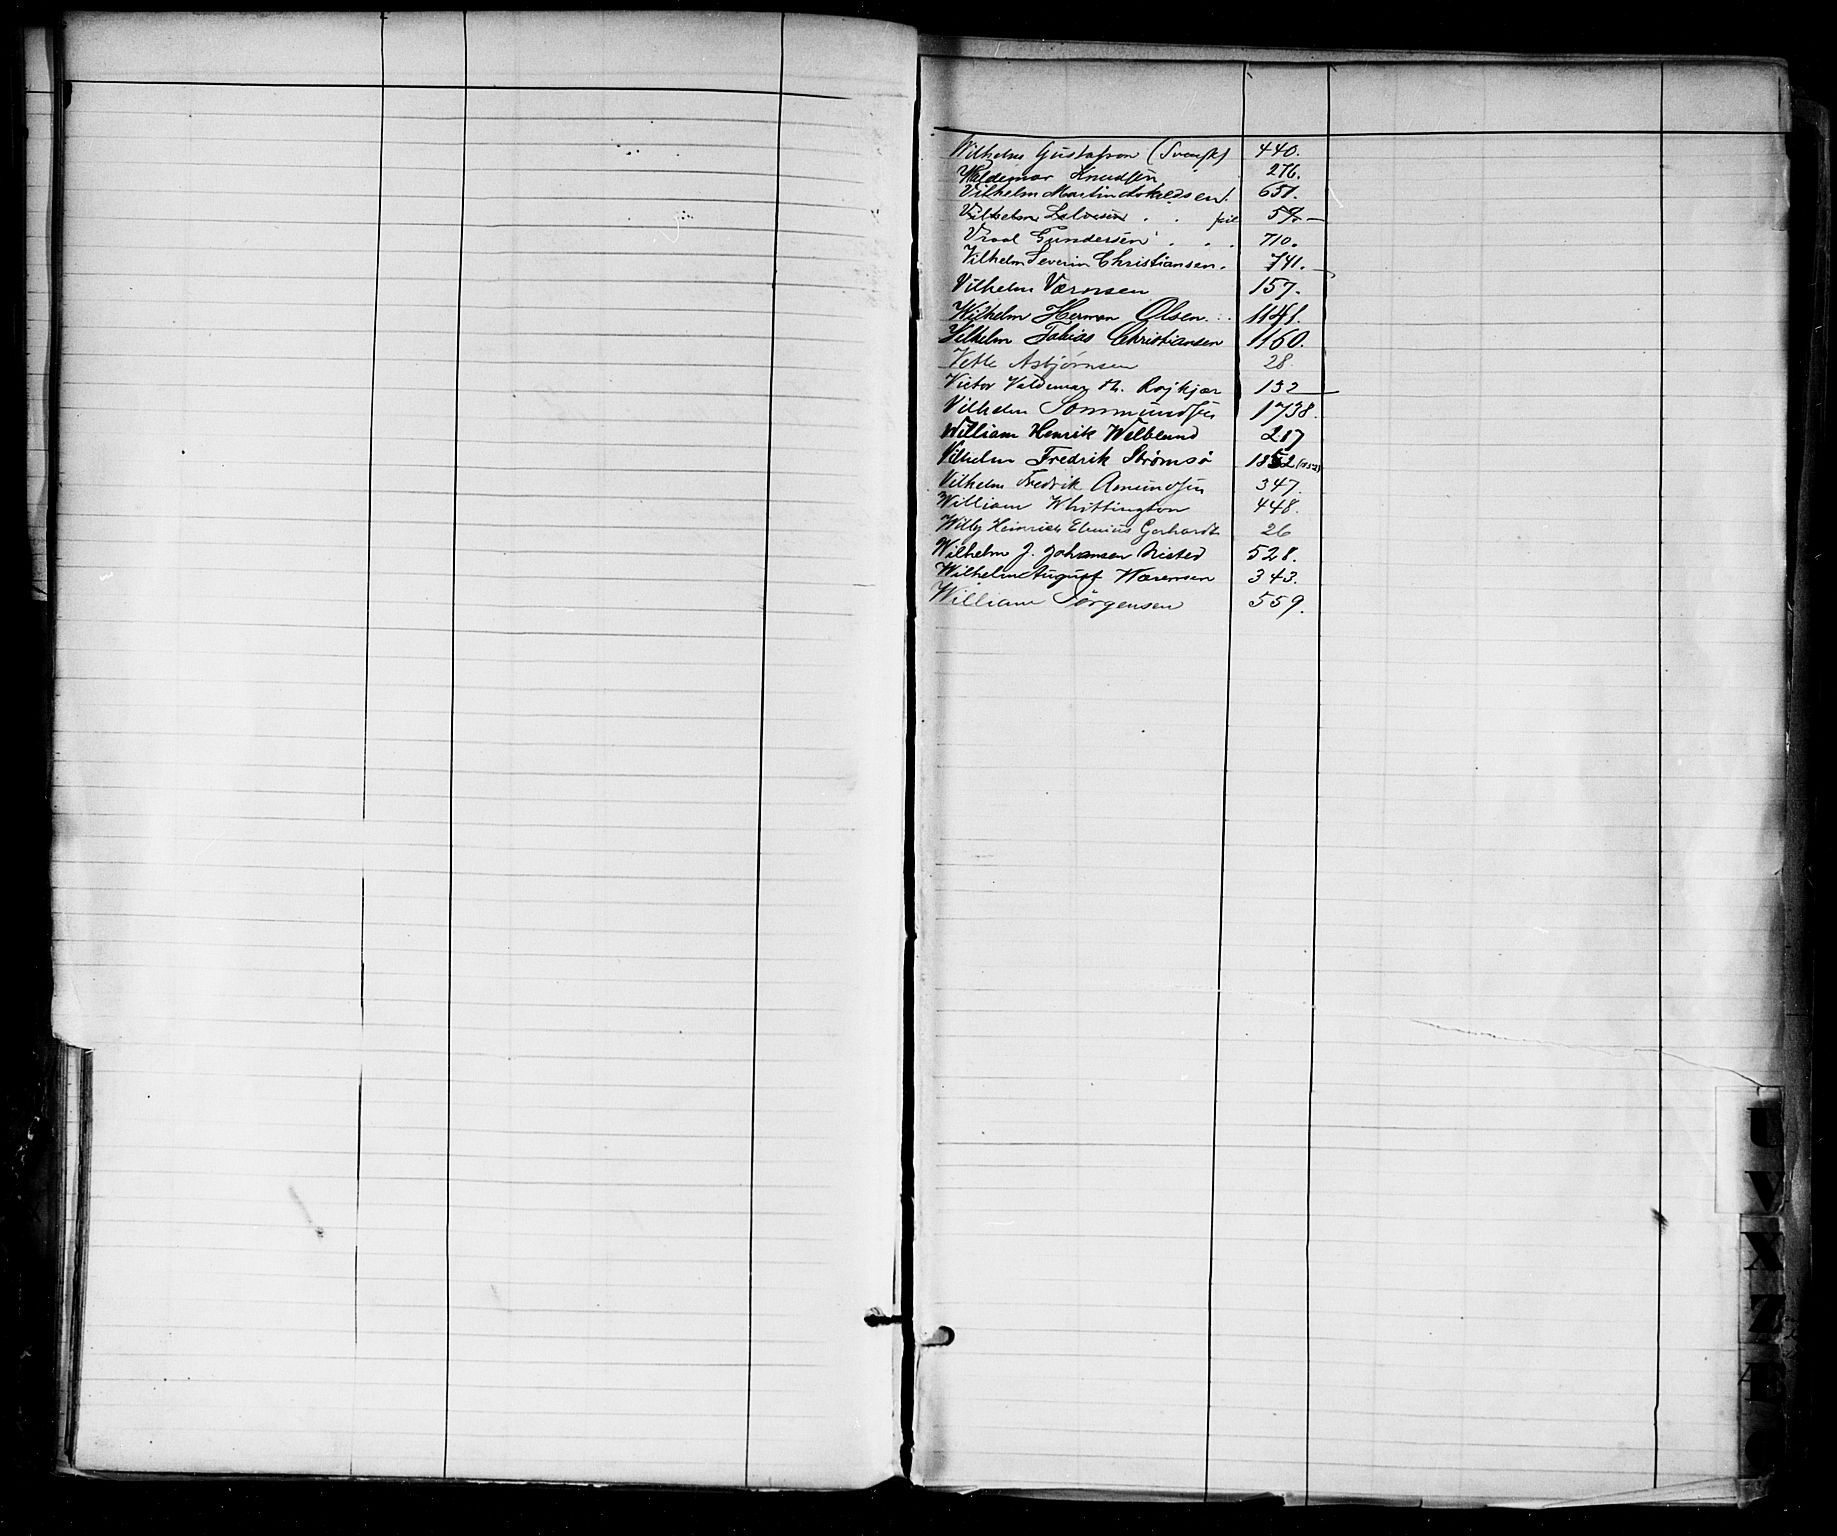 Wilhelm Gustafson (Svensk) 440.
Waldemar Knudsen 276.
Vilhelm Martin Askildsen. 651.
Vilhelm Salvesen . .
Vraal Gundersen . . . 710.
Vilhelm Severin Christiansen. 741.
VilhelmVærnsen 157.
Wilhelm Herman Olsen. 1141.
Vilhelm Tobias Christiansen 1160.
Vetle Asbjørnsen 28.
Victor Valdemar 132
Vilhelm Sommundsen 1738.
William Henrik Welblund 217
Vilhelm Fredrik Strømsö 1852
Vilhelm Fredrik Amundsen 347.
William Whittington 448.
Willy Heinrich Gerhardt 26
Wilhelm J. Johansen Nisted 528.
Wilhelm August Wærensen 343.
William Jørgensen 559.
U
V
X
Z
Æ